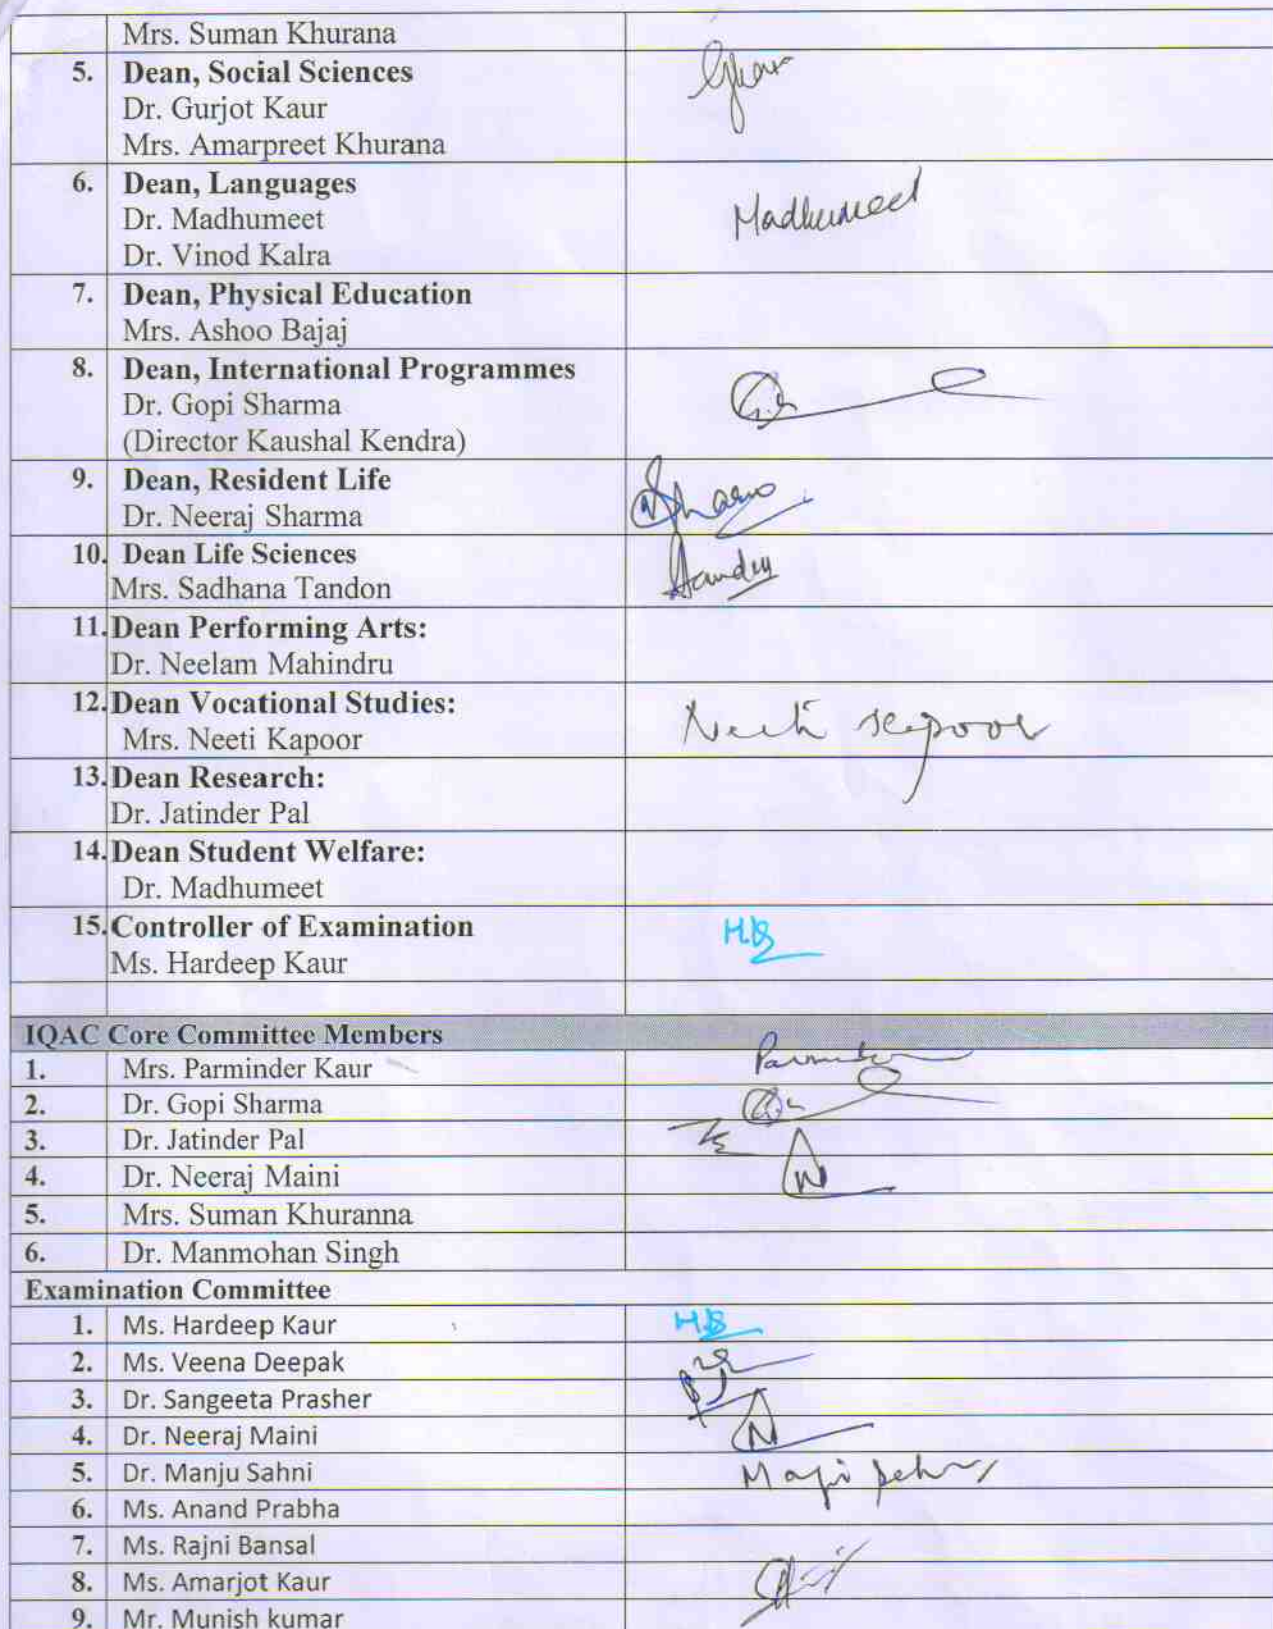 Mrs. Suman Khurana
5. Dean, Social Sciences
Dr. Gurjot Kaur
Mrs. Amarpreet Khurana
6. Dean, Languages
Dr. Madhumeet
Dr. Vinod Kalra
Madhumeet
7. Dean, Physical Education
Mrs. Ashoo Bajaj
8. Dean, International Programmes
Dr. Gopi Sharma
(Director Kaushal Kendra)
9. Dean, Resident Life
Dr. Neeraj Sharma
10. Dean Life Sciences
Mrs. Sadhana Tandon
11. Dean Performing Arts:
Dr. Neelam Mahindru
12. Dean Vocational Studies:
Mrs. Neeti Kapoor
Neeti Kapoor
13. Dean Research:
Dr. Jatinder Pal
14. Dean Student Welfare:
Dr. Madhumeet
15. Controller of Examination
Ms. Hardeep Kaur
IQAC Core Committee Members
1. Mrs. Parminder Kaur
2. Dr. Gopi Sharma
3. Dr. Jatinder Pal
4. Dr. Neeraj Maini
5. Mrs. Suman Khuranna
6. Dr. Manmohan Singh
Examination Committee
1. Ms. Hardeep Kaur
2. Ms. Veena Deepak
3. Dr. Sangeeta Prasher
4. Dr. Neeraj Maini
5. Dr. Manju Sahni
6. Ms. Anand Prabha
7. Ms. Rajni Bansal
8. Ms. Amarjot Kaur
9. Mr. Munish kumar